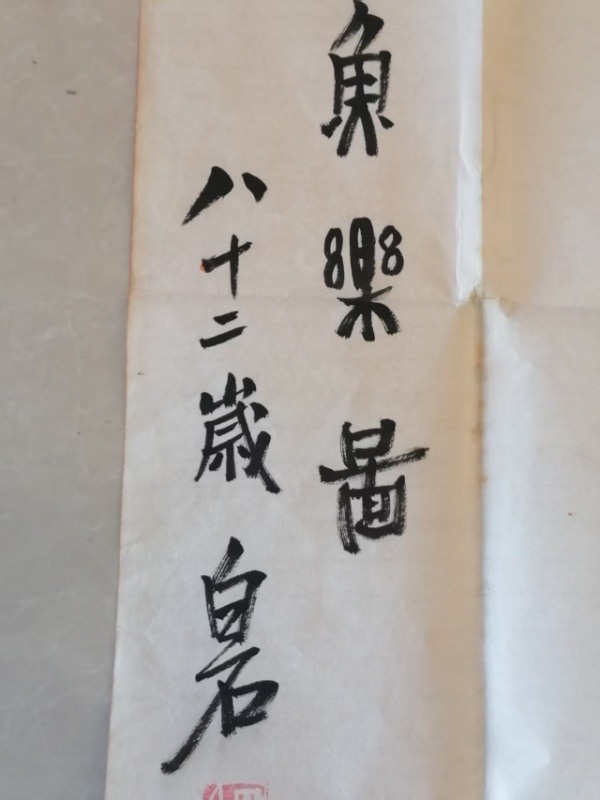 魚樂圖
八十二歲白石